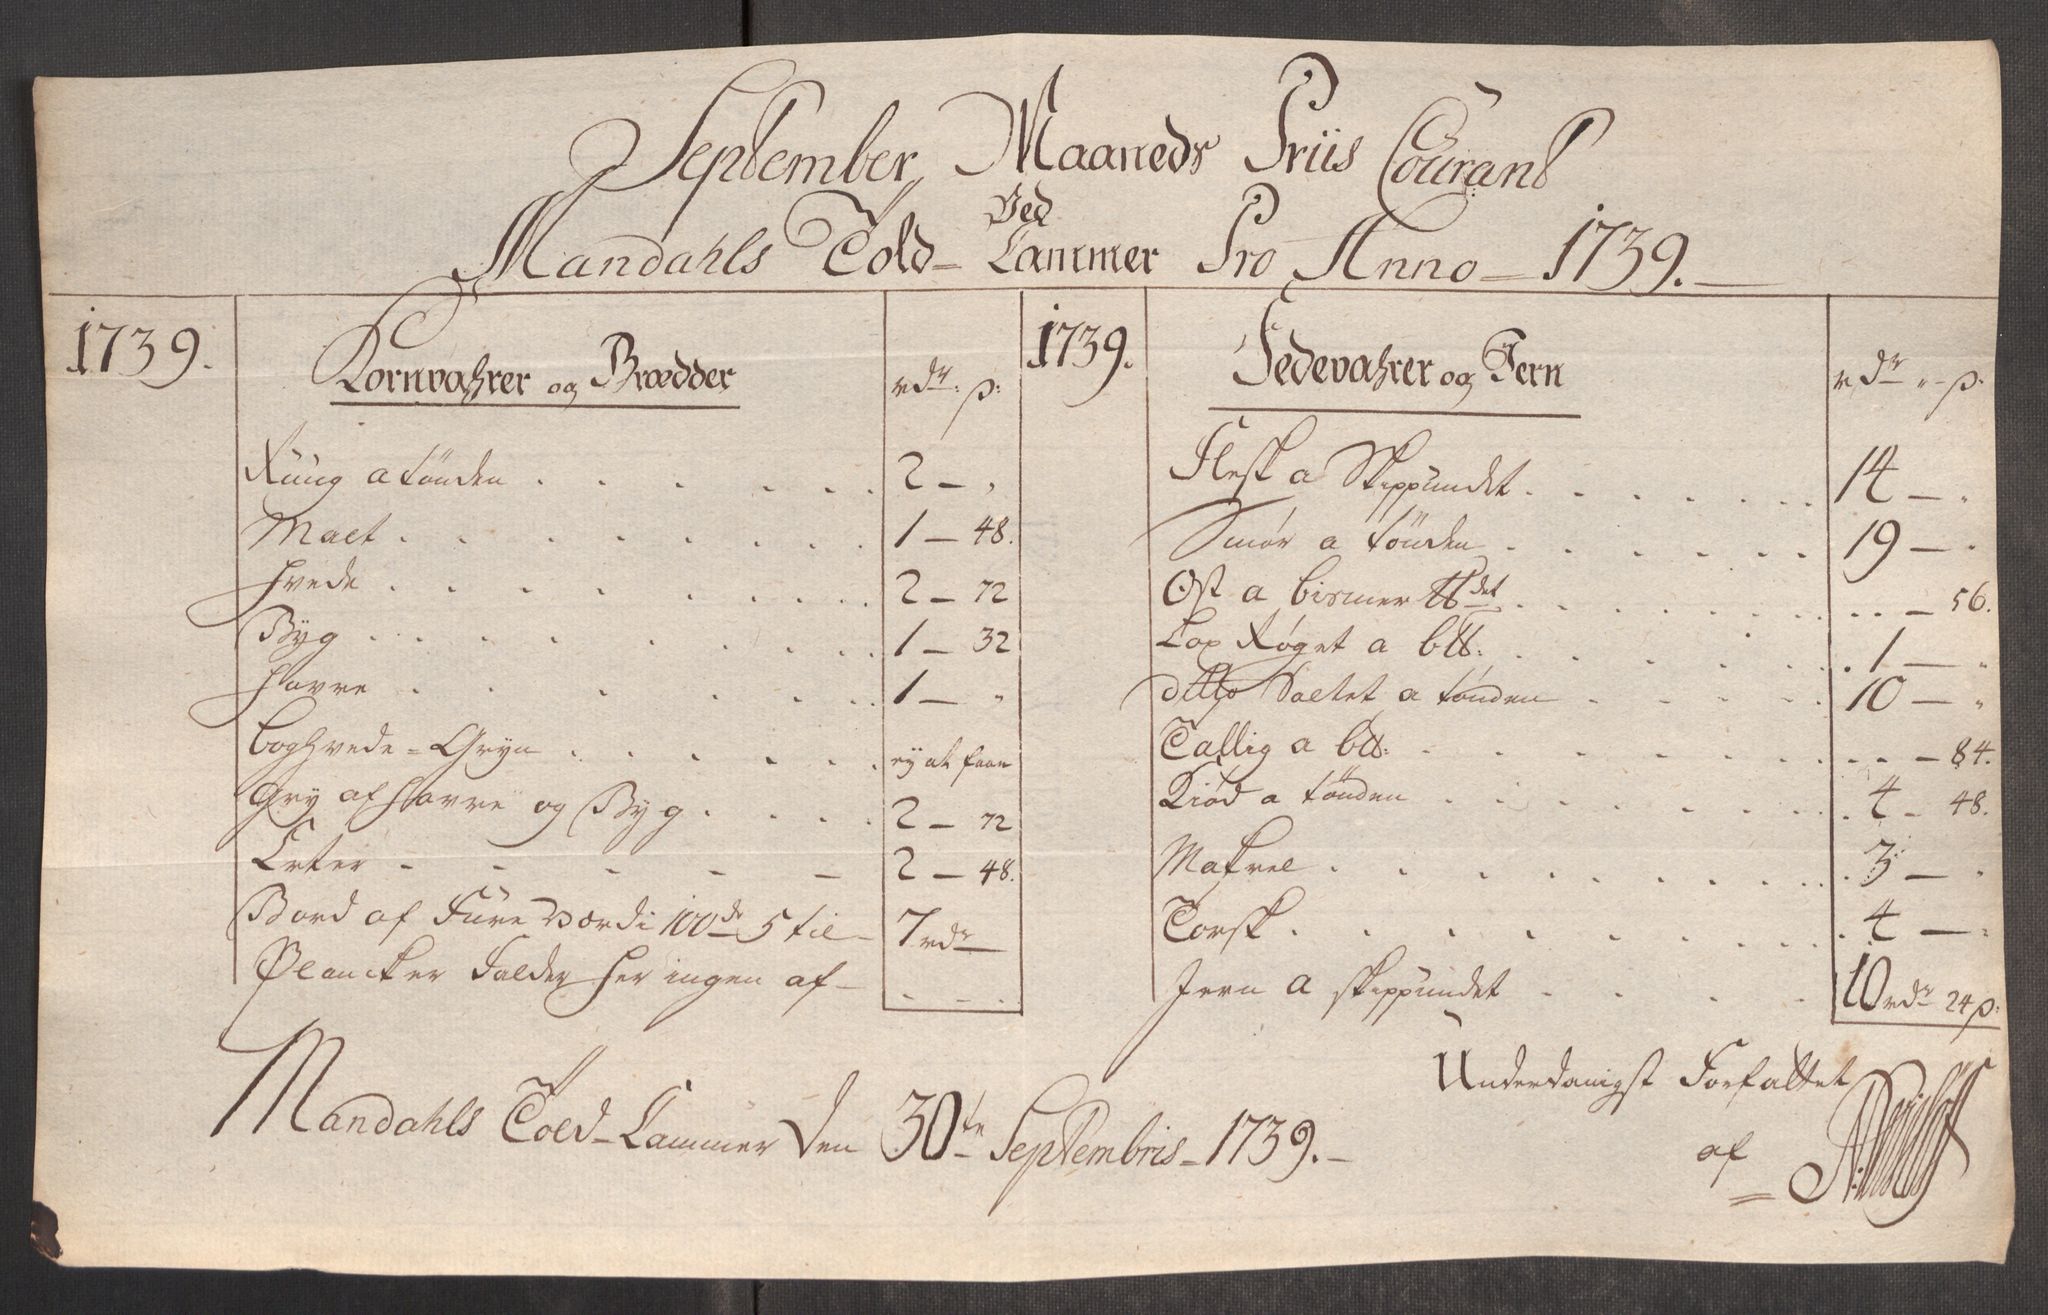 September Maaneds Priis Courant
Ved
Mandahls Told-Cammer Pro Anno-1739.
1739.
Kornvahrer og Brædder
rdr. ß:
Rúúg a tönden 2 - "
Malt 1 - 48.
Hvede 2 - 72
Bÿg 1 - 32
Havre 1 - "
Boghvede-Gryn eÿ at faae
Gry af Havre og Byg 2 - 72
Erter 2 - 48.
Bord af Fúre værdi 100de 5 til 7 rdr
Plancker falder her ingen af -
1739.
Fedevahrer og Jern
rdr " - ß.
Flesk a Skippúndet 14 - "
Smör a tönden 19 - "
Ost a bismer ℔det - 56.
Lax Røget a b℔: 1 - "
ditto Saltet a tønden 10 - "
Tallig a b℔: - 84.
Kiød a tønden 4 - 48.
Makrel 3 - "
Torsk 4 - "
Jern a skippúndet 10 rdr 24 ß:
Mandahls Told-Cammer den 30te Septembris-1739.
Underdanigst Forfattet
af